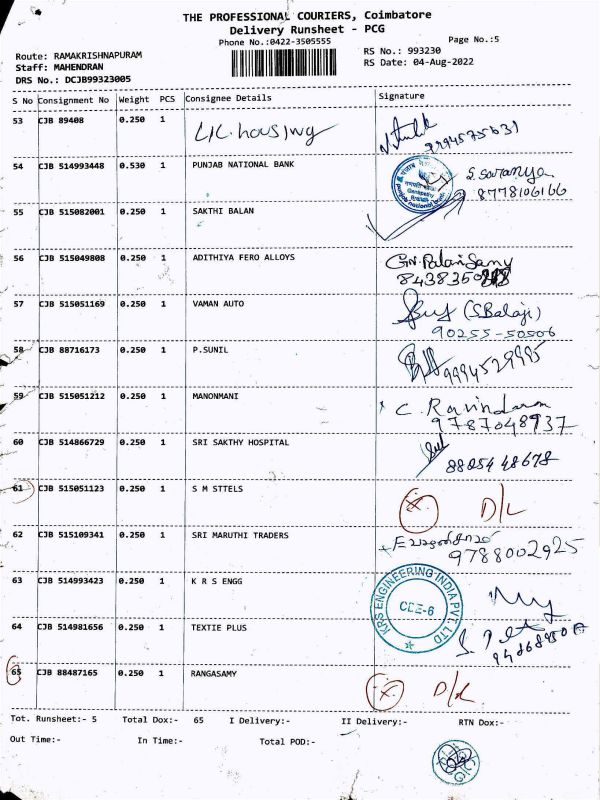 THE PROFESSIONAL COURIERS, Coimbatore
Delivery Runsheet - PCG
Phone No.:0422-3505555
Page No.:5
Route: RAMAKRISHNAPURAM
RS No.: 993230
Staff: MAHENDRAN
RS Date: 04-Aug-2022
DRS No.: DCJB99323005
S No Consignment No Weight PCS Consignee Details Signature
53 CJB 89408 0.250 1 LIC housing
54 CJB 514993448 0.530 1 PUNJAB NATIONAL BANK S. Saranya
8778106166
55 CJB 515082001 0.250 1 SAKTHI BALAN
56 CJB 515049808 0.250 1 ADITHIYA FERO ALLOYS G.N. PalaniSamy
57 CJB 515051169 0.250 1 VAMAN AUTO (S.Balaji)
90255-50506
58 CJB 88716173 0.250 1 P.SUNIL 9994529995
59 CJB 515051212 0.250 1 MANONMANI C. Ravindaran
9787048937
60 CJB 514866729 0.250 1 SRI SAKTHY HOSPITAL
88054 48678
61 CJB 515051123 0.250 1 S M STTELS D/L
62 CJB 515109341 0.250 1 SRI MARUTHI TRADERS
9788002925
63 CJB 514993423 0.250 1 K R S ENGG
KRS ENGINEERING INDIA PVT. LTD
CBE-6
64 CJB 514981656 0.250 1 TEXTIE PLUS
65 CJB 88487165 0.250 1 RANGASAMY D/L
Tot. Runsheet:- 5 Total Dox:- 65 I Delivery:- II Delivery:- RTN Dox:-
Out Time:- In Time:- Total POD:-